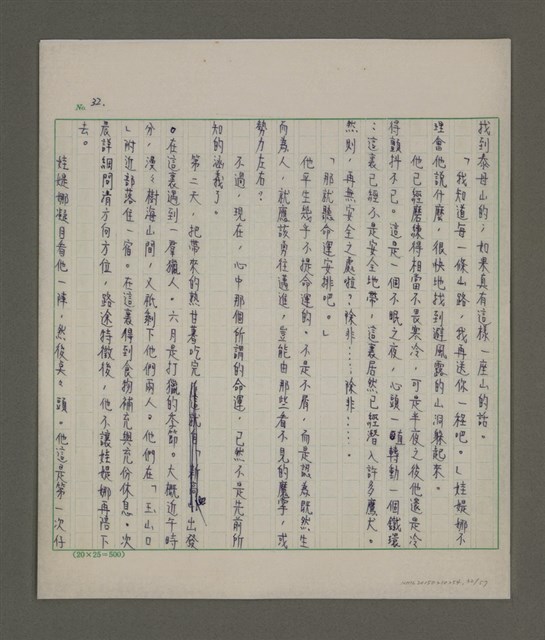 No. 32.
找到泰母山的;如果真有這樣一座山的話。
「我知道每一條山路,我再送你一程吧。」娃媞娜不
理會他說什麼,很快地找到避風露的山洞躲起來。
他已經磨練得相當不畏寒冷,可是半夜之後他還是冷
得顫抖不已。這是一個不眠之夜,心頭一直轉動一個鐵環
:這裏已經不是安全地帶,這裏居然已經潛入許多鷹犬。
然則,再無安全之處啦?除非……除非……。
「那就聽命運安排吧。」
他平生幾乎不提命運的。不是不屑,而是認為既然生
而為人,就應該勇往邁進,豈能由那些看不見的魔掌,或
勢力左右?
不過,現在,心中那個所謂的命運,已然不是先前所
知的涵義了。
第二天,把帶來的熟甘薯吃完 出發
。在這裏遇到一羣獵人。六月是打獵的季節。大概近午時
分,漫漫樹海山間,又祇剩下他們兩人。他們在「玉山口
」附近部落住一宿。在這裏得到食物補充與充份休息。次
晨詳細問清方向方位,路途特徵後,他不讓娃媞娜再陪下
去。
娃媞娜凝目看他一陣,然後奌奌頭。他這是第一次仔
(20×25=500)